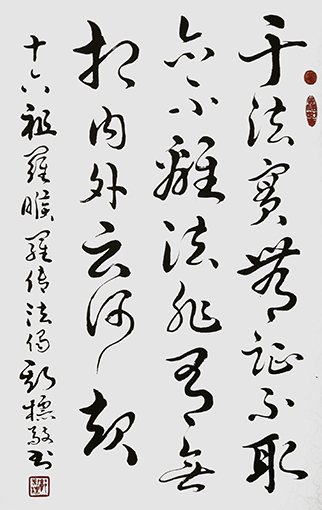 于法實無證不取
亦不離法非有無
相內外云何起
十六祖羅睺羅传法偈標敬书